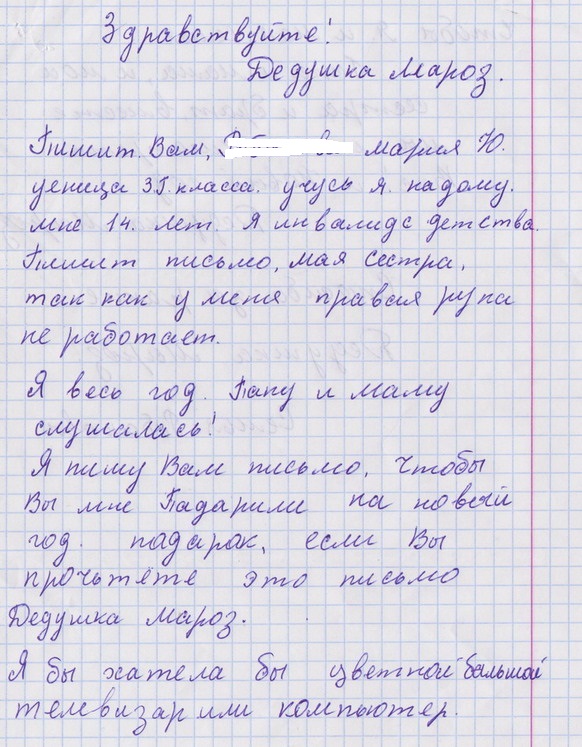 Здравствуйте!
Дедушка Мароз.
Пишит Вам, мария Ю.
уеница 3Г. класса. учусь я. на дому.
мне 14. лет. Я инвалидс детства.
Пишит письмо, мая сестра,
так как у меня правая рука
не работает.
Я весь год. Папу и маму
слушалась!
Я пишу Вам письмо, чтобы
Вы мне Падарили на новый
год. падарак, если Вы
прочьтёте это письмо
Дедушка Мароз.
Я бы хатела бы цветной большой
телевизар или компьютер.